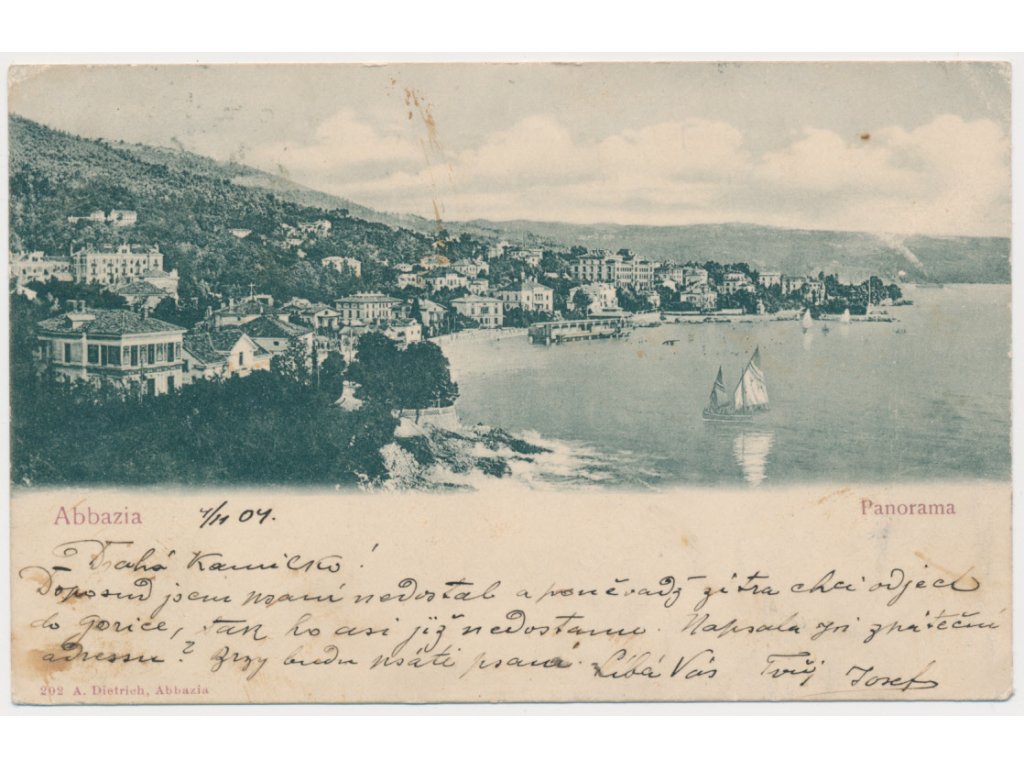 Abbazia 4/11 04. Panorama
Drahá Kamilko!
Doposud jsem psaní nedostal a poněvadž zitra chci odjeti
do Gorice, tak ho asi již nedostanu. Napsala jsi zpáteční
adressu? Brzy budu psáti psaní. Líbá Vás Tvůj Josef
202 A. Dietrich, Abbazia